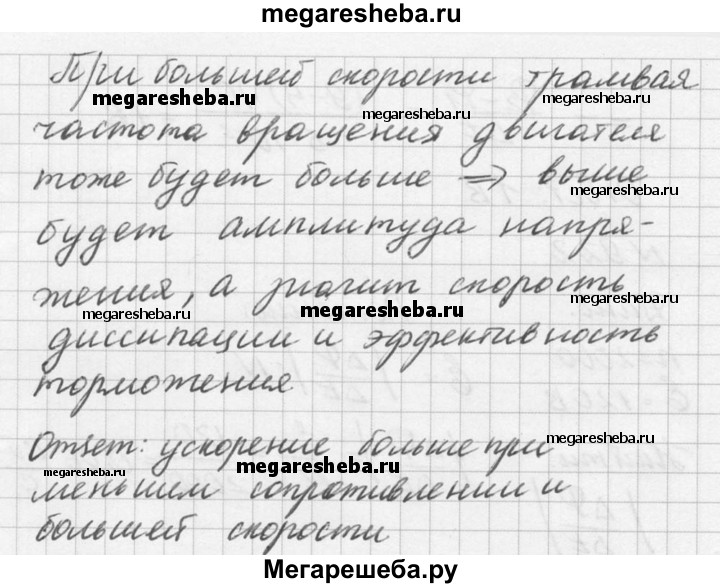 megaresheba.ru
При большей скорости трамвая
megaresheba.ru
megaresheba.ru
megaresheba.ru
частота вращения двигателя
тоже будет больше ⇒ выше
megaresheba.ru
будет амплитуда напря-
жения, а значит скорость
megaresheba.ru
megaresheba.ru
megaresheba.ru
диссипации и эффективность
торможения
Ответ: ускорение больше при
megaresheba.ru
megaresheba.ru
megaresheba.ru
меньшим сопротивлении и
большей скорости
Мегарешеба.ру